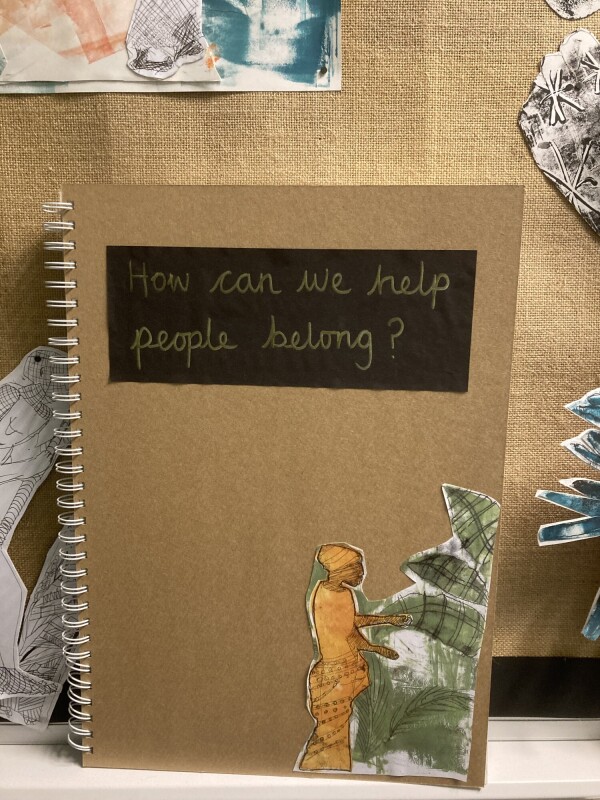 How can we help
people belong?